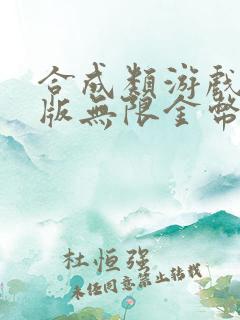 合成類游戲
版無限金幣
杜恒强
未经同意禁止转载